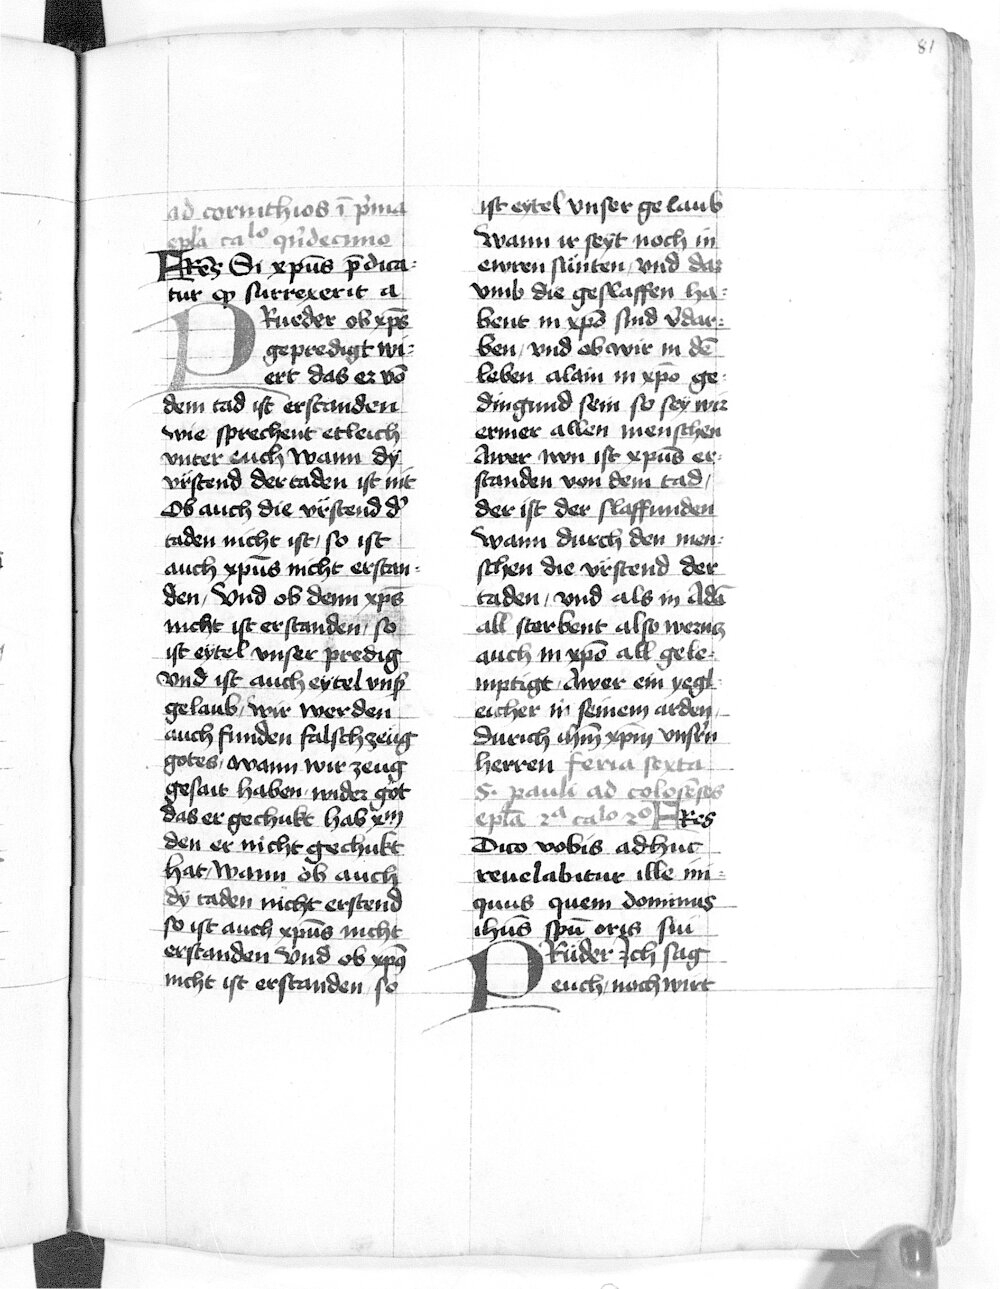 81
ad corinthios ī p̄ma
epl̄a ca^lo qͥndecimo
FRēs Si xpūs p̄dica⸗
tur ꝙ surrexerit a
PRueder ob xp̄s
gepredigt wi⸗
ert das er vō
dem tad ist erstanden
wie sprechent etleich
vnter euch Wann dÿ
vrstend der taden ist nit
Ob auch die vrstend d̛
taden nicht ist / so ist
auch xpūs nicht erstan⸗
den / Vnd ob denn xpūs
nicht ist erstanden / so
ist eytel vnser predig
Vnd ist auch eytel vns̛
gelaub / wir werden
auch funden falsch zeüg
gotes / wann wir zeüg
gesait haben / wider got
das er gechukt hab xp̄m
den er nicht gechukt
hat / Wann ob auch
dÿ taden nicht erstend
so ist auch xpūs nicht
erstanden Vnd ob xpūs
nicht ist erstanden / so
ist eytel vnser gelaub
Wann ir seÿt noch in
ewren sünten / vnd dar
vmb die geslaffen ha⸗
bent in xp̄o sind v̛dar⸗
ben / vnd ob wir in dē
leben alain in xp̄o ge⸗
dingund sein so seÿ wir
ermer allen menschen
Awer nvn ist xpūs er⸗
standen von dem tad /
der ist der slaffunden
Wann durch den men⸗
schen die vrstend der
taden / vnd als in Adā
all sterbent also werns
auch in xp̄o all gele⸗
mptigt / Awer ein yegl⸗
eicher in seinem arden /
durich ihm̄ xpm̄ vnsr̄n
herren feria sexta
S. pauli ad colosēses
epl̄a 2^a ca^lo 2^o FRes
Dico vobis adhuc
reuelabitur ille ini⸗
quus quem dominus
ihūs spū oris sui
PRüder Ich sag
euch / noch wirt